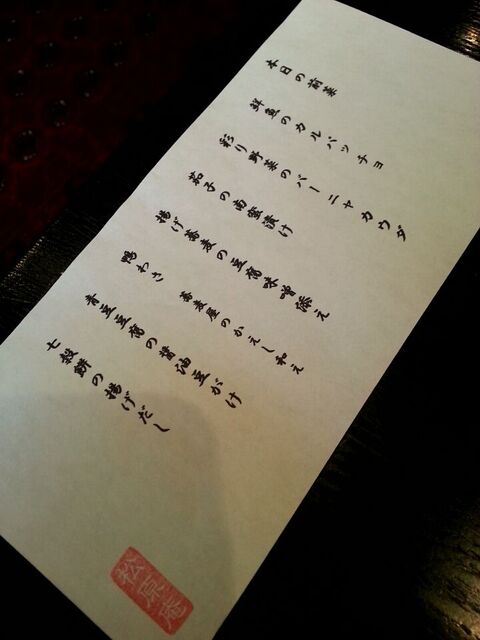 本日の前菜
鮮魚のカルパッチョ
彩り野菜のバーニャカウダ
茄子の白蜜漬け
揚げ蕎麦の豆腐味噌添え
鴨わさ 蕎麦屋のかえし和え
青豆豆腐の醤油豆がけ
七穀餅の揚げだし
松原庵